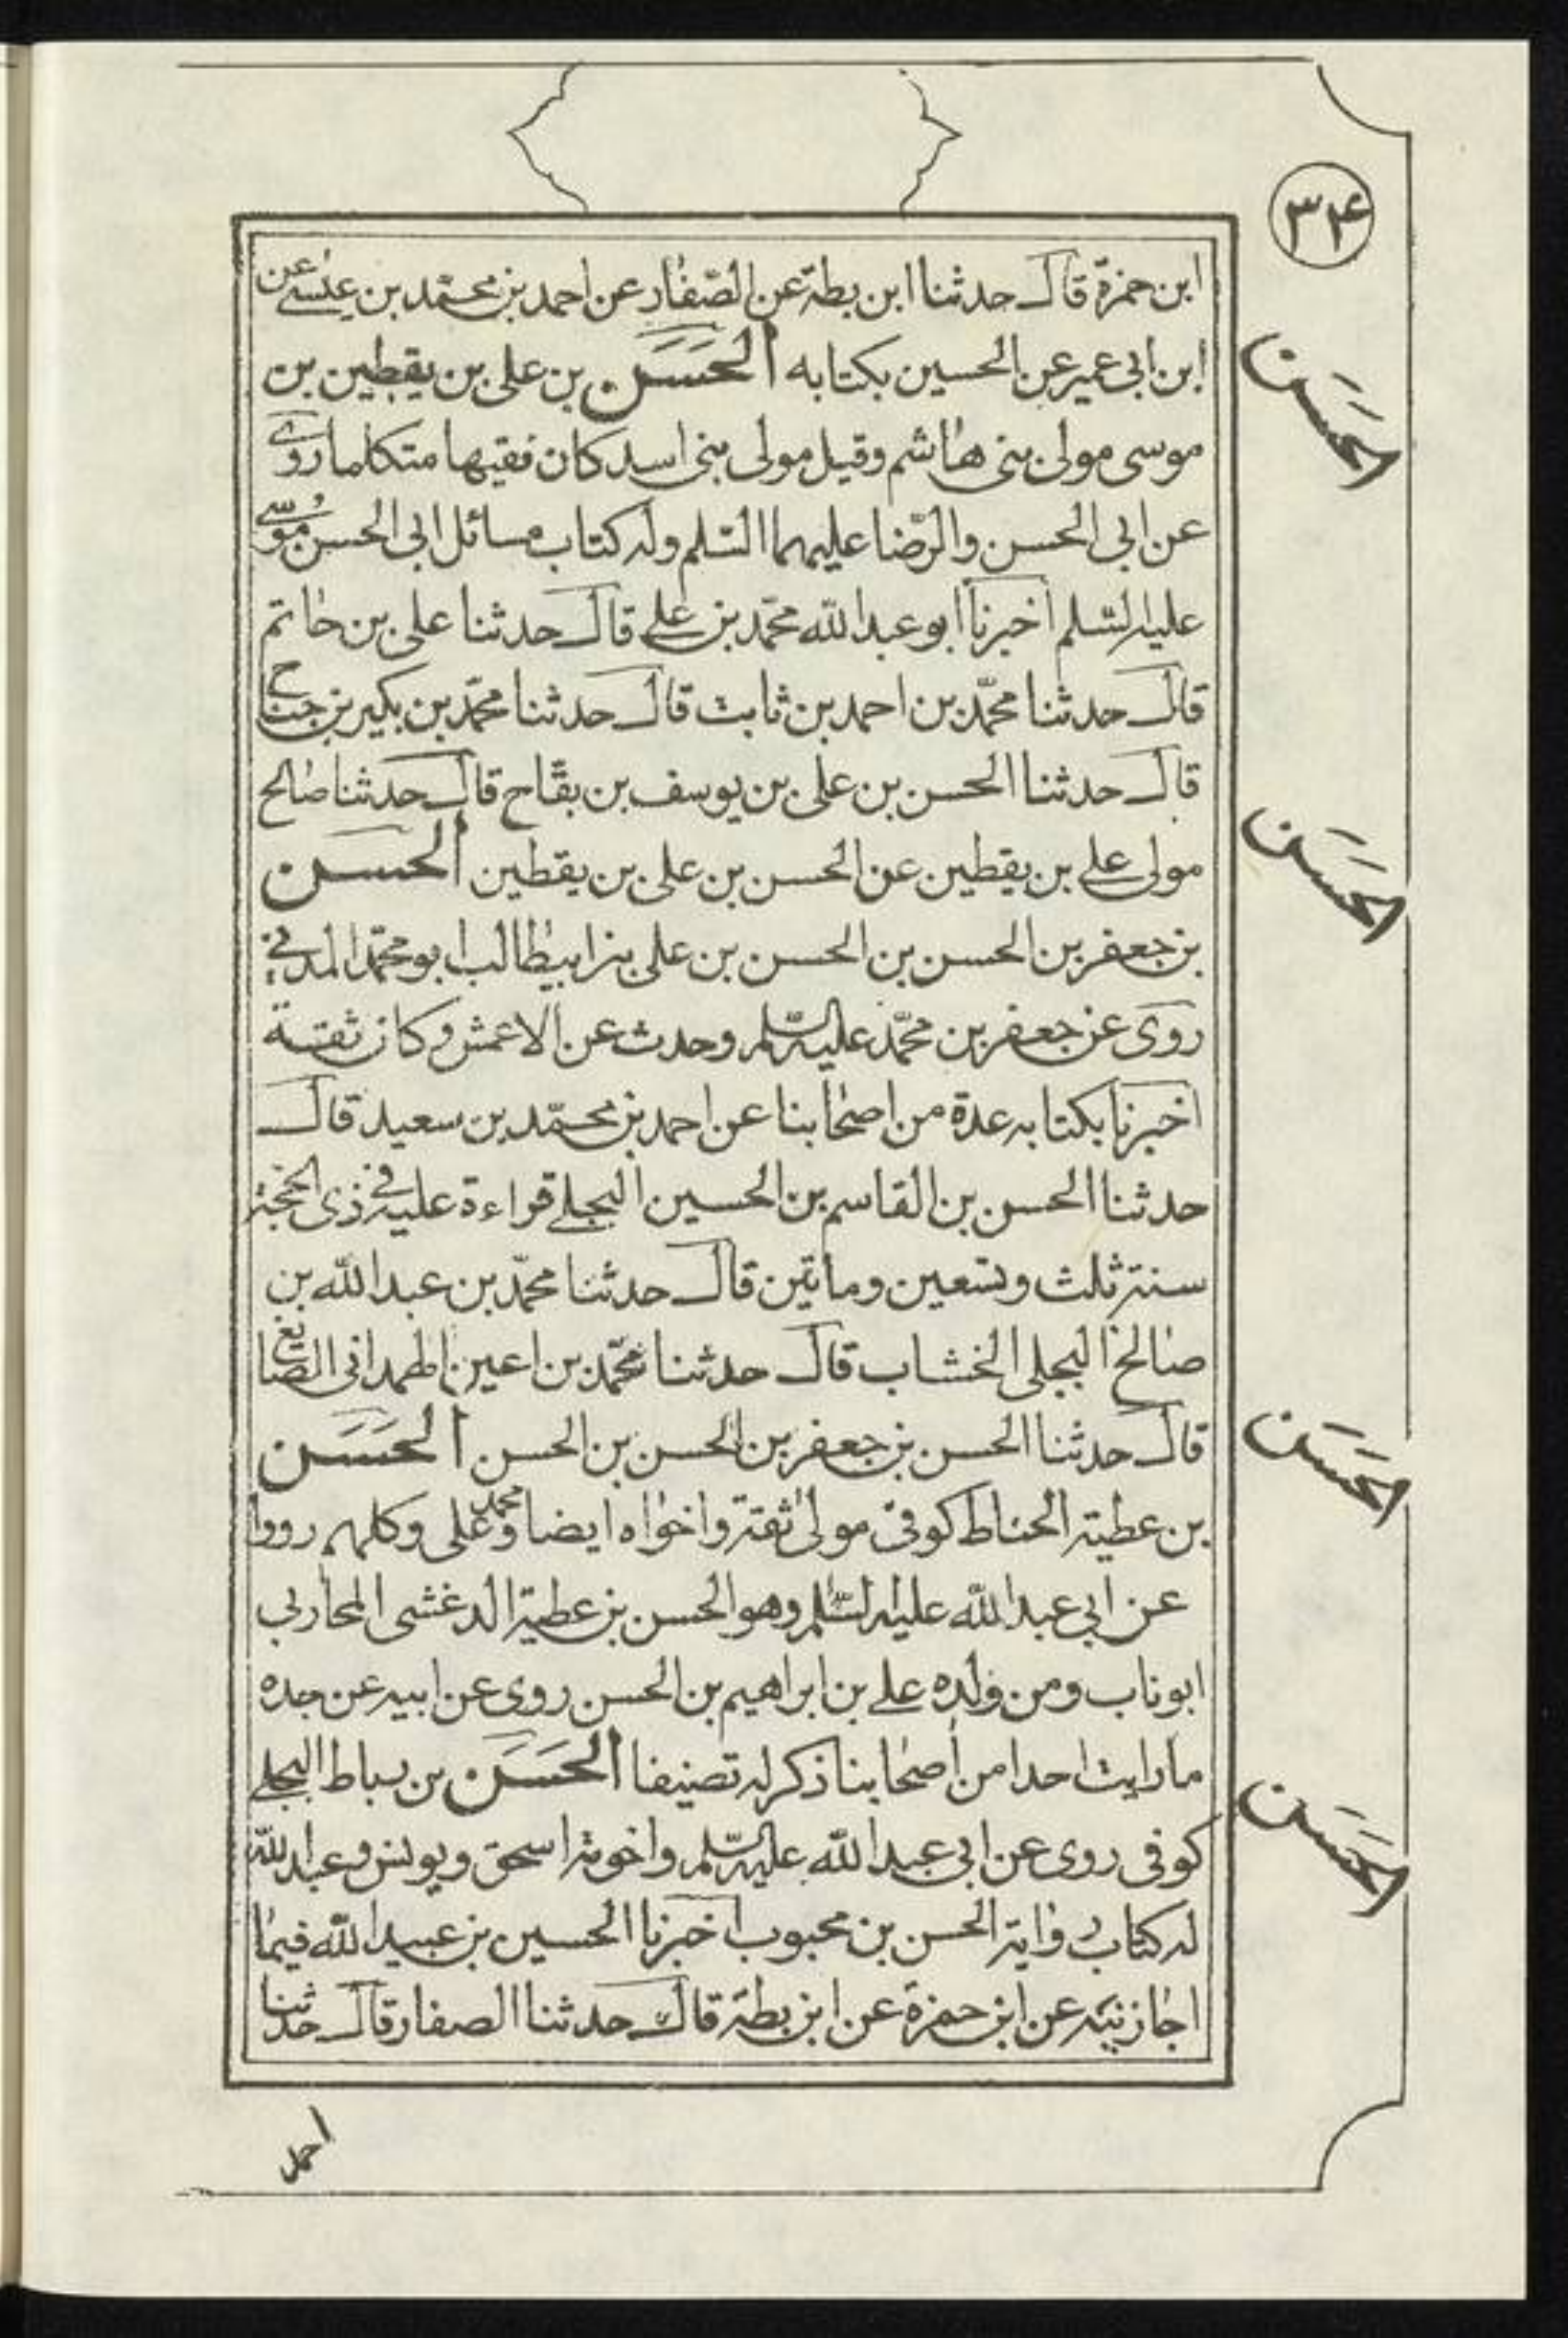 ۳۴
ابن حمزة قال حدثنا ابن بطة عن الصفار عن احمد بن محمّد بن عيسى عن
ابن ابى عمير عن الحسين بكتابه الحَسَن بن على بن يقطين بن
موسى مولى بنى هاشم وقيل مولى بنى اسد كان فقيها متكلما روى
عن ابى الحسن والرّضا عليهما السّلم وله كتاب مسائل ابى الحسن موسى
عليه السّلم اخبرنا ابو عبد الله محمّد بن على قال حدثنا على بن حاتم
قال حدثنا محمّد بن احمد بن ثابت قال حدثنا محمّد بن بكير بن جناح
قال حدثنا الحسن بن على بن يوسف بن بقّاح قال حدثنا صالح
مولى على بن يقطين عن الحسن بن على بن يقطين الحسن
بن جعفر بن الحسن بن الحسن بن على بن ابيطالب ابو محمّد المدنى
روى عن جعفر بن محمّد عليه السّلم وحدث عن الاعمش وكان ثقة
اخبرنا بكتابه عدة من اصحابنا عن احمد بن محمّد بن سعيد قال
حدثنا الحسن بن القاسم بن الحسين البجلى قراءة عليه فى ذى الحجة
سنة ثلث وتسعين وماتين قال حدثنا محمّد بن عبد الله بن
صالح البجلى الخشاب قال حدثنا محمّد بن اعين الهمدانى الصايغ
قال حدثنا الحسن بن جعفر بن الحسن بن الحسن الحَسَن
بن عطية الحناط كوفىّ مولى ثقة واخواه ايضا محمد وعلى وكلهم رووا
عن ابى عبد الله عليه السّلم وهو الحسن بن عطية الدغشى المحاربى
ابو ناب ومن ولده على بن ابراهيم بن الحسن روى عن ابيه عن جده
ما رايت احدا من اصحابنا ذكر له تصنيفا الحَسَن بن بساط البجلى
كوفى روى عن ابى عبد الله عليه السّلم واخوته اسحق ويونس وعبد الله
له كتاب رواية الحسن بن محبوب اخبرنا الحسين بن عبيد الله فيما
اجازنيه عن ابن حمزة عن ابن بطة قال حدثنا الصفار قال حدثنا
احمد
الحَسَن
الحَسَن
الحَسَن
الحَسَن